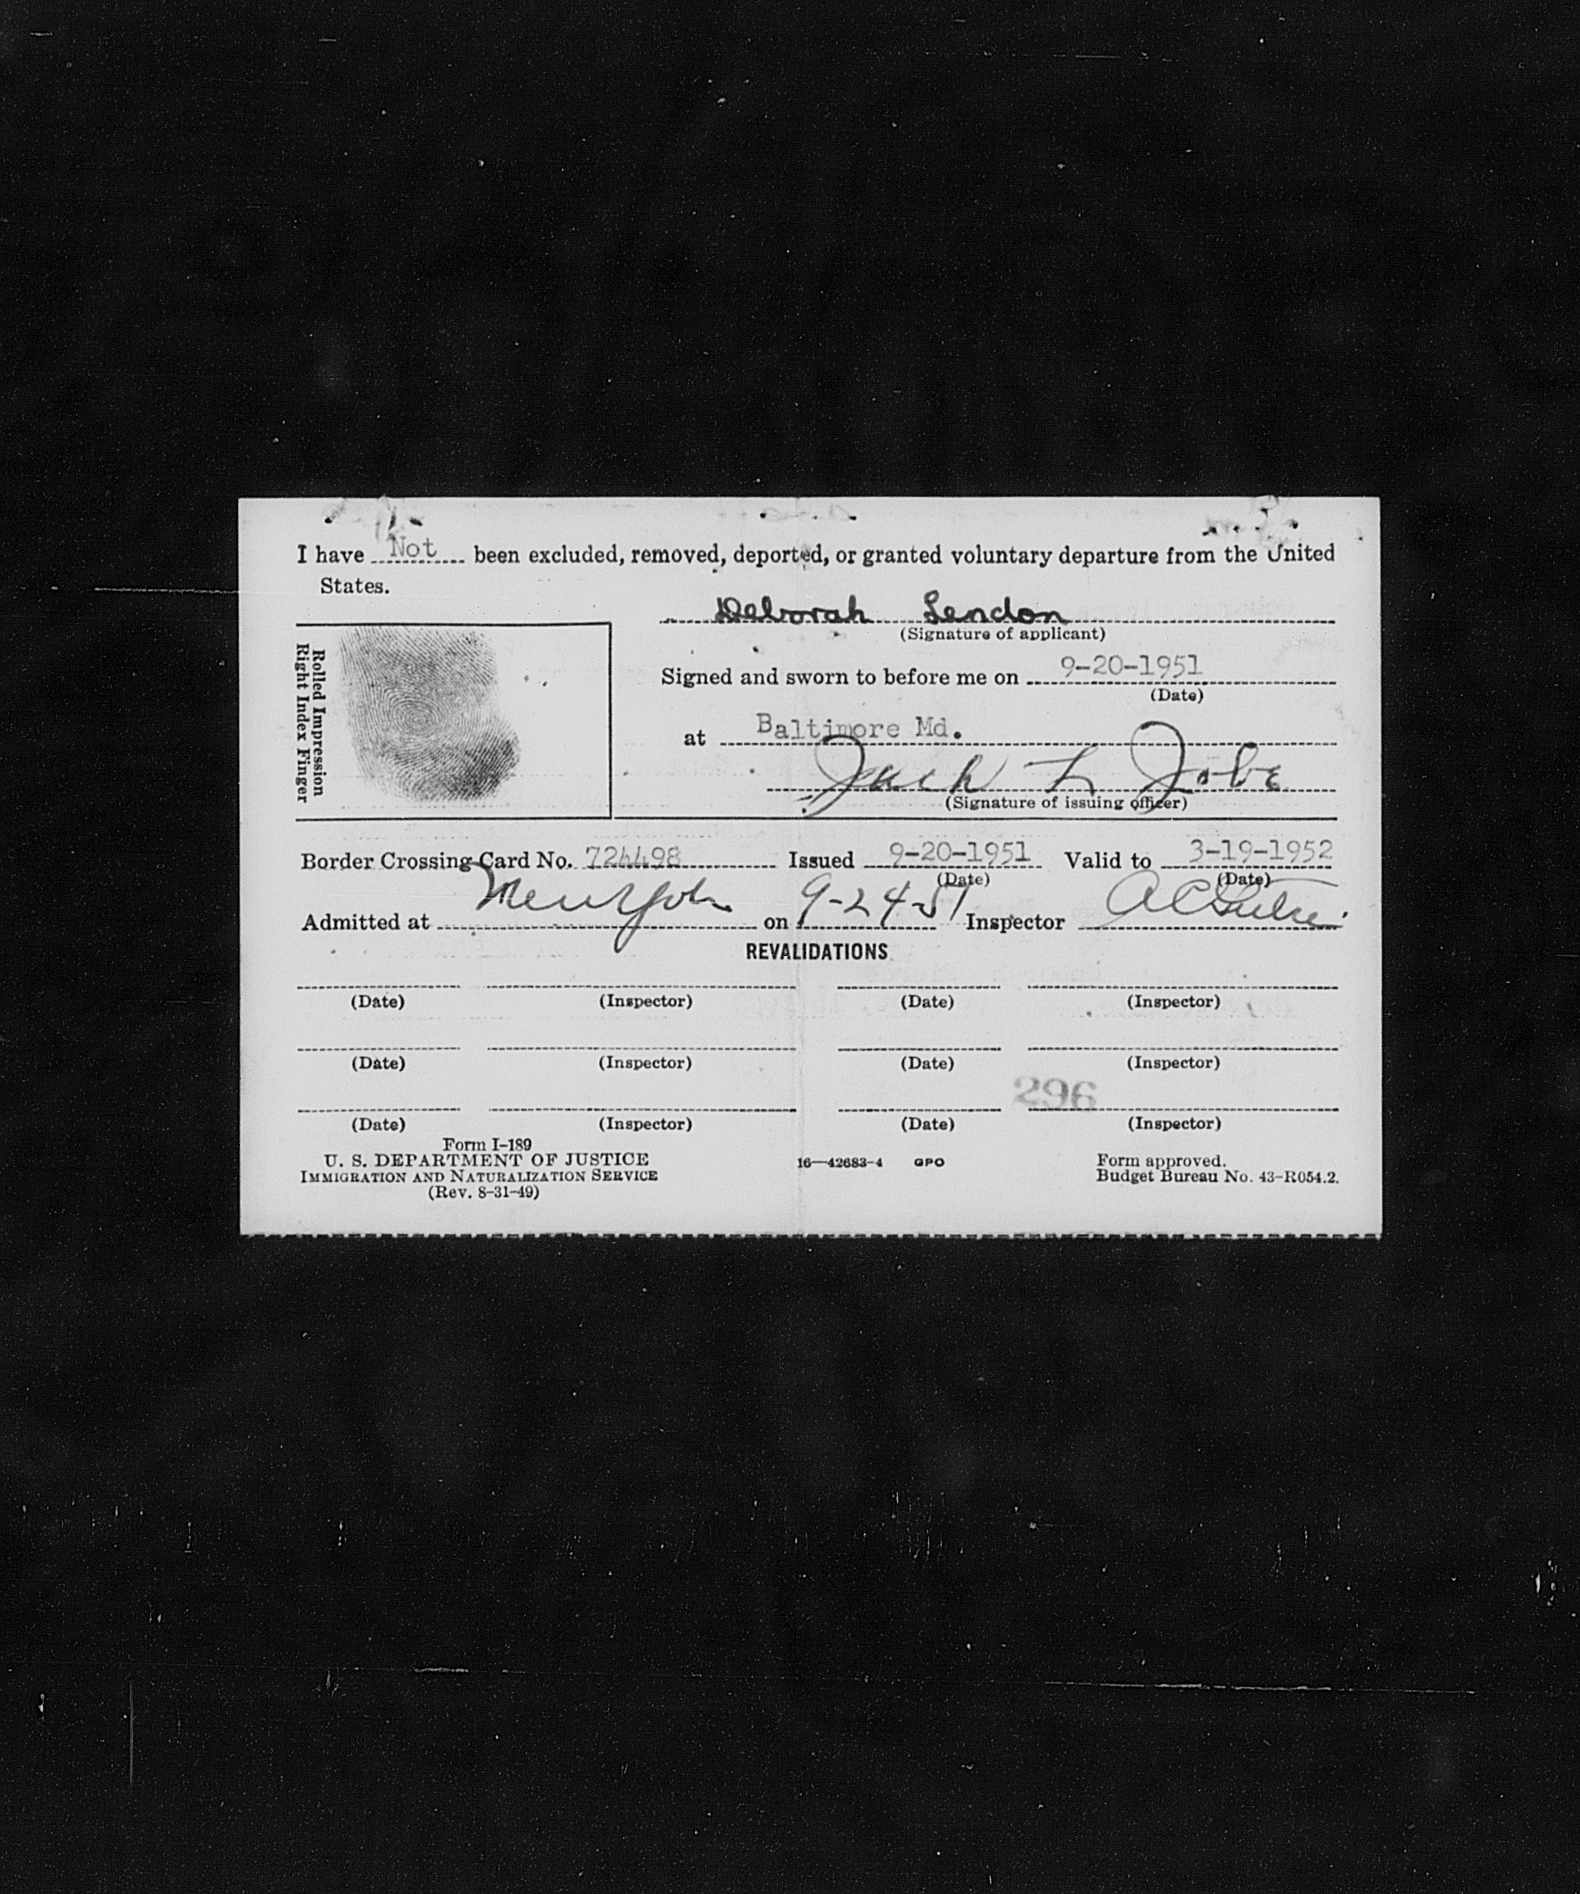 I have Not been excluded, removed, deported, or granted voluntary departure from the United
States.
Deborah Lendon
(Signature of applicant)
Rolled Impression
Right Index Finger
Signed and sworn to before me on 9-20-1951
(Date)
at Baltimore Md.
Jack L Jobe
(Signature of issuing officer)
Border Crossing Card No. 724498 Issued 9-20-1951 Valid to 3-19-1952
(Date) (Date)
Admitted at New York on 9-24-51 Inspector
REVALIDATIONS
(Date) (Inspector) (Date) (Inspector)
(Date) (Inspector) (Date) (Inspector)
296
(Date) (Inspector) (Date) (Inspector)
Form I-189
U. S. DEPARTMENT OF JUSTICE 16—42683-4 GPO Form approved.
IMMIGRATION AND NATURALIZATION SERVICE Budget Bureau No. 43-R054.2.
(Rev. 8-31-49)